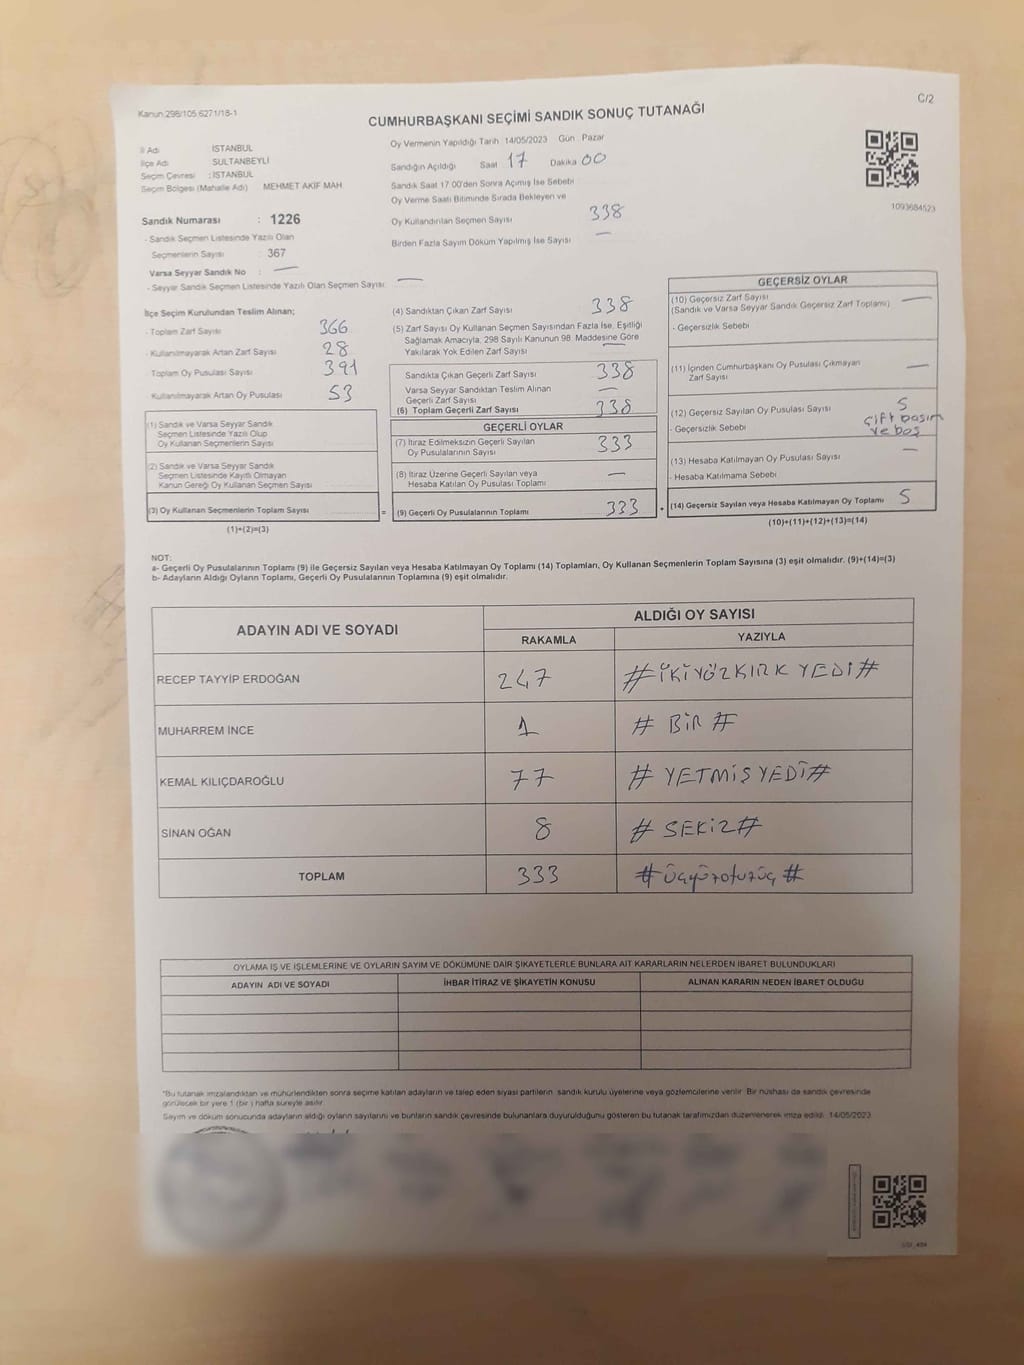 Kanun:298/105 6271/18-1
C/2
CUMHURBAŞKANI SEÇİMİ SANDIK SONUÇ TUTANAĞI
İl Adı : İSTANBUL
İlçe Adı SULTANBEYLİ
Seçim Çevresi : İSTANBUL
Seçim Bölgesi (Mahalle Adı) MEHMET AKİF MAH.
Sandık Numarası : 1226
- Sandık Seçmen Listesinde Yazılı Olan
Seçmenlerin Sayısı : 367
Varsa Seyyar Sandık No : —
- Seyyar Sandık Seçmen Listesinde Yazılı Olan Seçmen Sayısı: —
Oy Vermenin Yapıldığı Tarih 14/05/2023 Gün Pazar
Sandığın Açıldığı Saat 17 Dakika 00
Sandık Saat 17.00'den Sonra Açımış İse Sebebi
Oy Verme Saati Bitiminde Sırada Bekleyen ve
Oy Kullandırılan Seçmen Sayısı 338
Birden Fazla Sayım Döküm Yapılmış İse Sayısı —
1093684523
İlçe Seçim Kurulundan Teslim Alınan;
- Toplam Zarf Sayısı 366
- Kullanılmayarak Artan Zarf Sayısı 28
- Toplam Oy Pusulası Sayısı 391
- Kullanılmayarak Artan Oy Pusulası 53
(1) Sandık ve Varsa Seyyar Sandık
Seçmen Listesinde Yazılı Olup
Oy Kullanan Seçmenlerin Sayısı
(2) Sandık ve Varsa Seyyar Sandık
Seçmen Listesinde Kayıtlı Olmayan
Kanun Gereği Oy Kullanan Seçmen Sayısı
(3) Oy Kullanan Seçmenlerin Toplam Sayısı
(1)+(2)=(3)
=
(4) Sandıktan Çıkan Zarf Sayısı 338
(5) Zarf Sayısı Oy Kullanan Seçmen Sayısından Fazla İse, Eşitliği
Sağlamak Amacıyla, 298 Sayılı Kanunun 98. Maddesine Göre
Yakılarak Yok Edilen Zarf Sayısı —
Sandıkta Çıkan Geçerli Zarf Sayısı 338
Varsa Seyyar Sandıktan Teslim Alınan
Geçerli Zarf Sayısı —
(6) Toplam Geçerli Zarf Sayısı 338
GEÇERLİ OYLAR
(7) İtiraz Edilmeksizin Geçerli Sayılan
Oy Pusulalarının Sayısı 333
(8) İtiraz Üzerine Geçerli Sayılan veya
Hesaba Katılan Oy Pusulası Toplamı —
(9) Geçerli Oy Pusulalarının Toplamı 333
+
GEÇERSİZ OYLAR
(10) Geçersiz Zarf Sayısı —
(Sandık ve Varsa Seyyar Sandık Geçersiz Zarf Toplamı)
- Geçersizlik Sebebi
(11) İçinden Cumhurbaşkanı Oy Pusulası Çıkmayan
Zarf Sayısı —
(12) Geçersiz Sayılan Oy Pusulası Sayısı 5
- Geçersizlik Sebebi çift basım
ve boş
(13) Hesaba Katılmayan Oy Pusulası Sayısı —
- Hesaba Katılmama Sebebi
(14) Geçersiz Sayılan veya Hesaba Katılmayan Oy Toplamı 5
(10)+(11)+(12)+(13)=(14)
NOT:
a- Geçerli Oy Pusulalarının Toplamı (9) ile Geçersiz Sayılan veya Hesaba Katılmayan Oy Toplamı (14) Toplamları, Oy Kullanan Seçmenlerin Toplam Sayısına (3) eşit olmalıdır. (9)+(14)=(3)
b- Adayların Aldığı Oyların Toplamı, Geçerli Oy Pusulalarının Toplamına (9) eşit olmalıdır.
ADAYIN ADI VE SOYADI
ALDIĞI OY SAYISI
RAKAMLA YAZIYLA
RECEP TAYYİP ERDOĞAN 247 #İKİYÜZKIRK YEDİ#
MUHARREM İNCE 1 # BİR #
KEMAL KILIÇDAROĞLU 77 # YETMİŞYEDİ#
SİNAN OĞAN 8 # SEKİZ#
TOPLAM 333 #üçyüzotuzüç #
OYLAMA İŞ VE İŞLEMLERİNE VE OYLARIN SAYIM VE DÖKÜMÜNE DAİR ŞİKAYETLERLE BUNLARA AİT KARARLARIN NELERDEN İBARET BULUNDUKLARI
ADAYIN ADI VE SOYADI İHBAR İTİRAZ VE ŞİKAYETİN KONUSU ALINAN KARARIN NEDEN İBARET OLDUĞU
*Bu tutanak imzalandıktan ve mühürlendikten sonra seçime katılan adayların ve talep eden siyasi partilerin sandık kurulu üyelerine veya gözlemcilerine verilir. Bir nüshası da sandık çevresinde
görülecek bir yere 1 (bir ) hafta süreyle asılır.
Sayım ve döküm sonucunda adayların aldığı oyların sayılarını ve bunların sandık çevresinde bulunanlara duyurulduğunu gösteren bu tutanak tarafımızdan düzenlenerek imza edildi. 14/05/2023